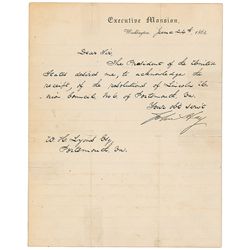 Executive Mansion,
Washington, June 24th, 186
Dear Sir,
The President of the United
States desired me, to acknowledge the
receipt, of the resolutions of Lincoln Un-
ion Council, No 6. of Portsmouth, Ou.
Your obt servt
John Hay
W. H. Lyond Esq
Portsmouth, Ou.